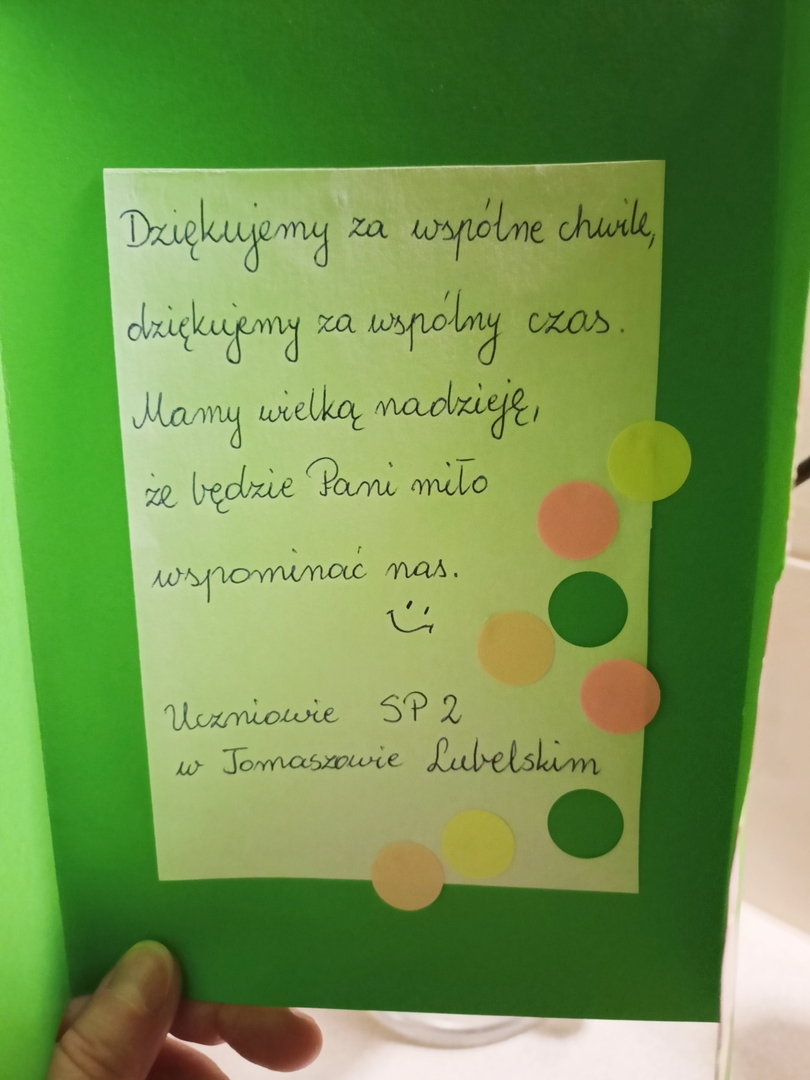 Dziękujemy za wspólne chwile,
dziękujemy za wspólny czas.
Mamy wielką nadzieję,
że będzie Pani miło
wspominać nas.
Uczniowie SP 2
w Tomaszowie Lubelskim